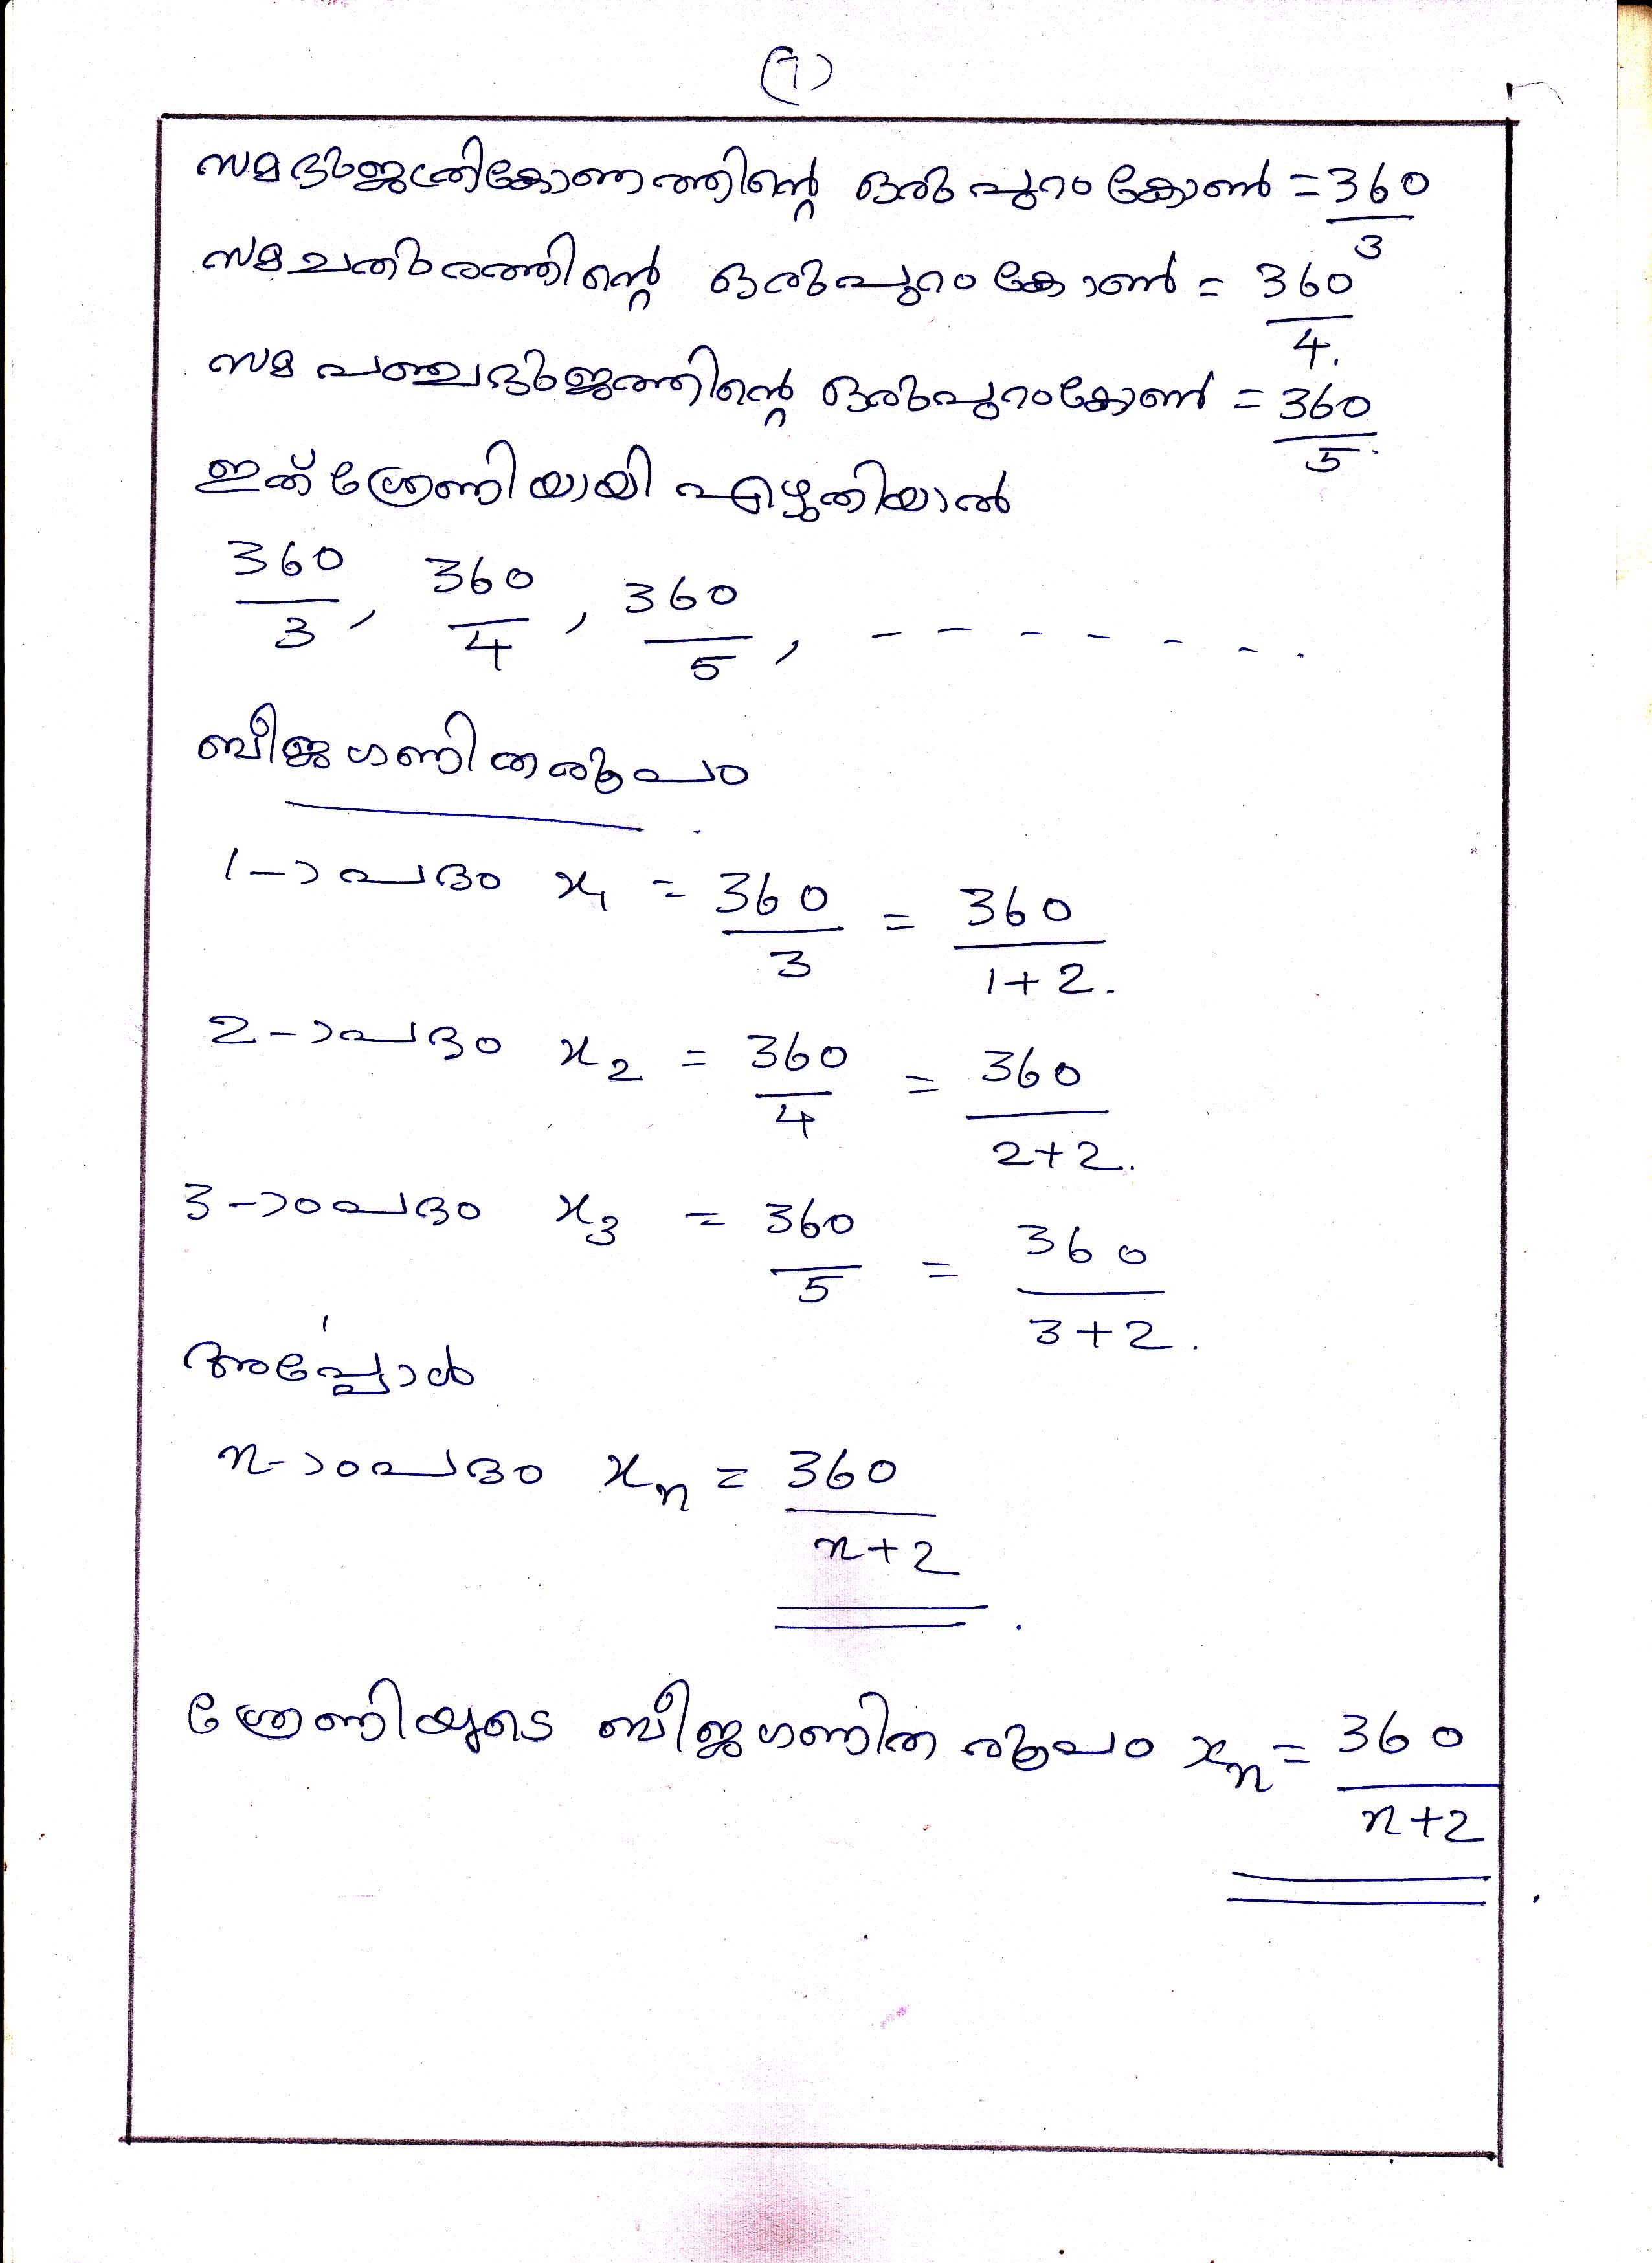 (7)
സമഭുജത്രികോണത്തിന്റെ ഒരു പുറംകോൺ = 360/3
സമചതുരത്തിന്റെ ഒരു പുറംകോൺ = 360/4.
സമപഞ്ചഭുജത്തിന്റെ ഒരു പുറംകോൺ = 360/5.
ഇത് ശ്രേണിയായി എഴുതിയാൽ
360/3, 360/4, 360/5, - - - - - - .
ബീജഗണിതരൂപം
1-ാപദം x₁ = 360/3 = 360/1+2.
2-ാപദം x₂ = 360/4 = 360/2+2.
3-ാംപദം x₃ = 360/5 = 360/3+2.
അപ്പോൾ
n-ാംപദം xₙ = 360/n+2.
ശ്രേണിയുടെ ബീജഗണിത രൂപം xₙ = 360/n+2.